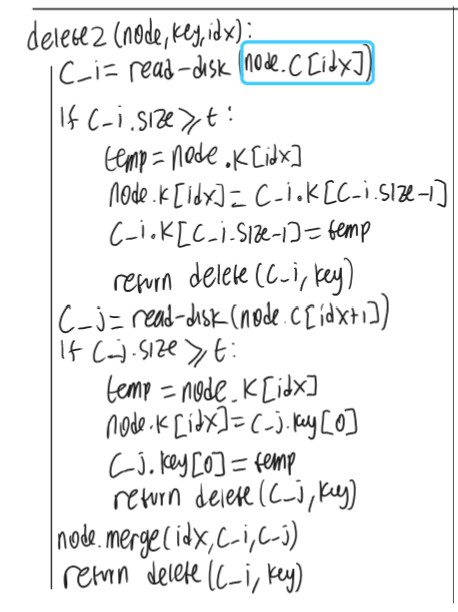 delete2 (node, key, idx):
C_i = read-disk (node.C[idx])
If C_i.size ⩾ t:
temp = node.K[idx]
node.K[idx] = C_i.K[C_i.size-1]
C_i.K[C_i.size-1] = temp
return delete (C_i, key)
C_j = read-disk (node.C[idx+1])
If C_j.size ⩾ t:
temp = node.K[idx]
node.K[idx] = C_j.key[0]
C_j.key[0] = temp
return delete (C_j, key)
node.merge(idx, C_i, C_j)
return delete (C_i, key)